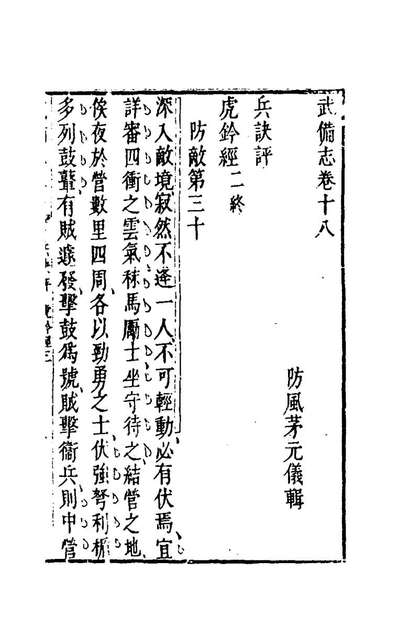 武備志卷十八
防風茅元儀輯
兵訣評
虎鈐經二終
防敵第三十
深入敵境寂然不逢一人不可輕動必有伏焉宜
詳審四衝之雲氣秣馬厲士坐守待之結營之地
俟夜於營數里四周各以勁勇之士伏強弩利楯
多列鼓鼙有賊遽發擊鼓爲號賊擊衞兵則中營